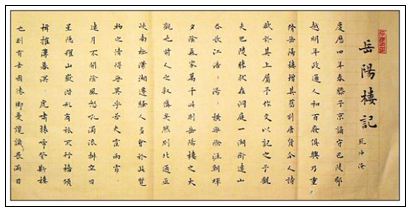 岳陽樓記
范仲淹
慶曆四年春滕子京謫守巴陵郡
越明年政通人和百廢俱興乃重
修岳陽樓增其舊制刻唐賢今人詩
賦於其上屬予作文以記之予觀
夫巴陵勝狀在洞庭一湖銜遠山
吞長江浩〻湯〻橫無際涯朝暉
夕陰氣象萬千此則岳陽樓之大
觀也前人之述備矣然則北通巫
峽南極瀟湘遷客騷人多會於此覽
物之情得無異乎若夫霪雨霏〻
連月不開陰風怒吼濁浪排空日
星隱耀山嶽潛形商旅不行檣傾
楫摧薄暮冥〻虎嘯猿啼登斯樓
也則有去國懷鄉憂讒畏譏滿目